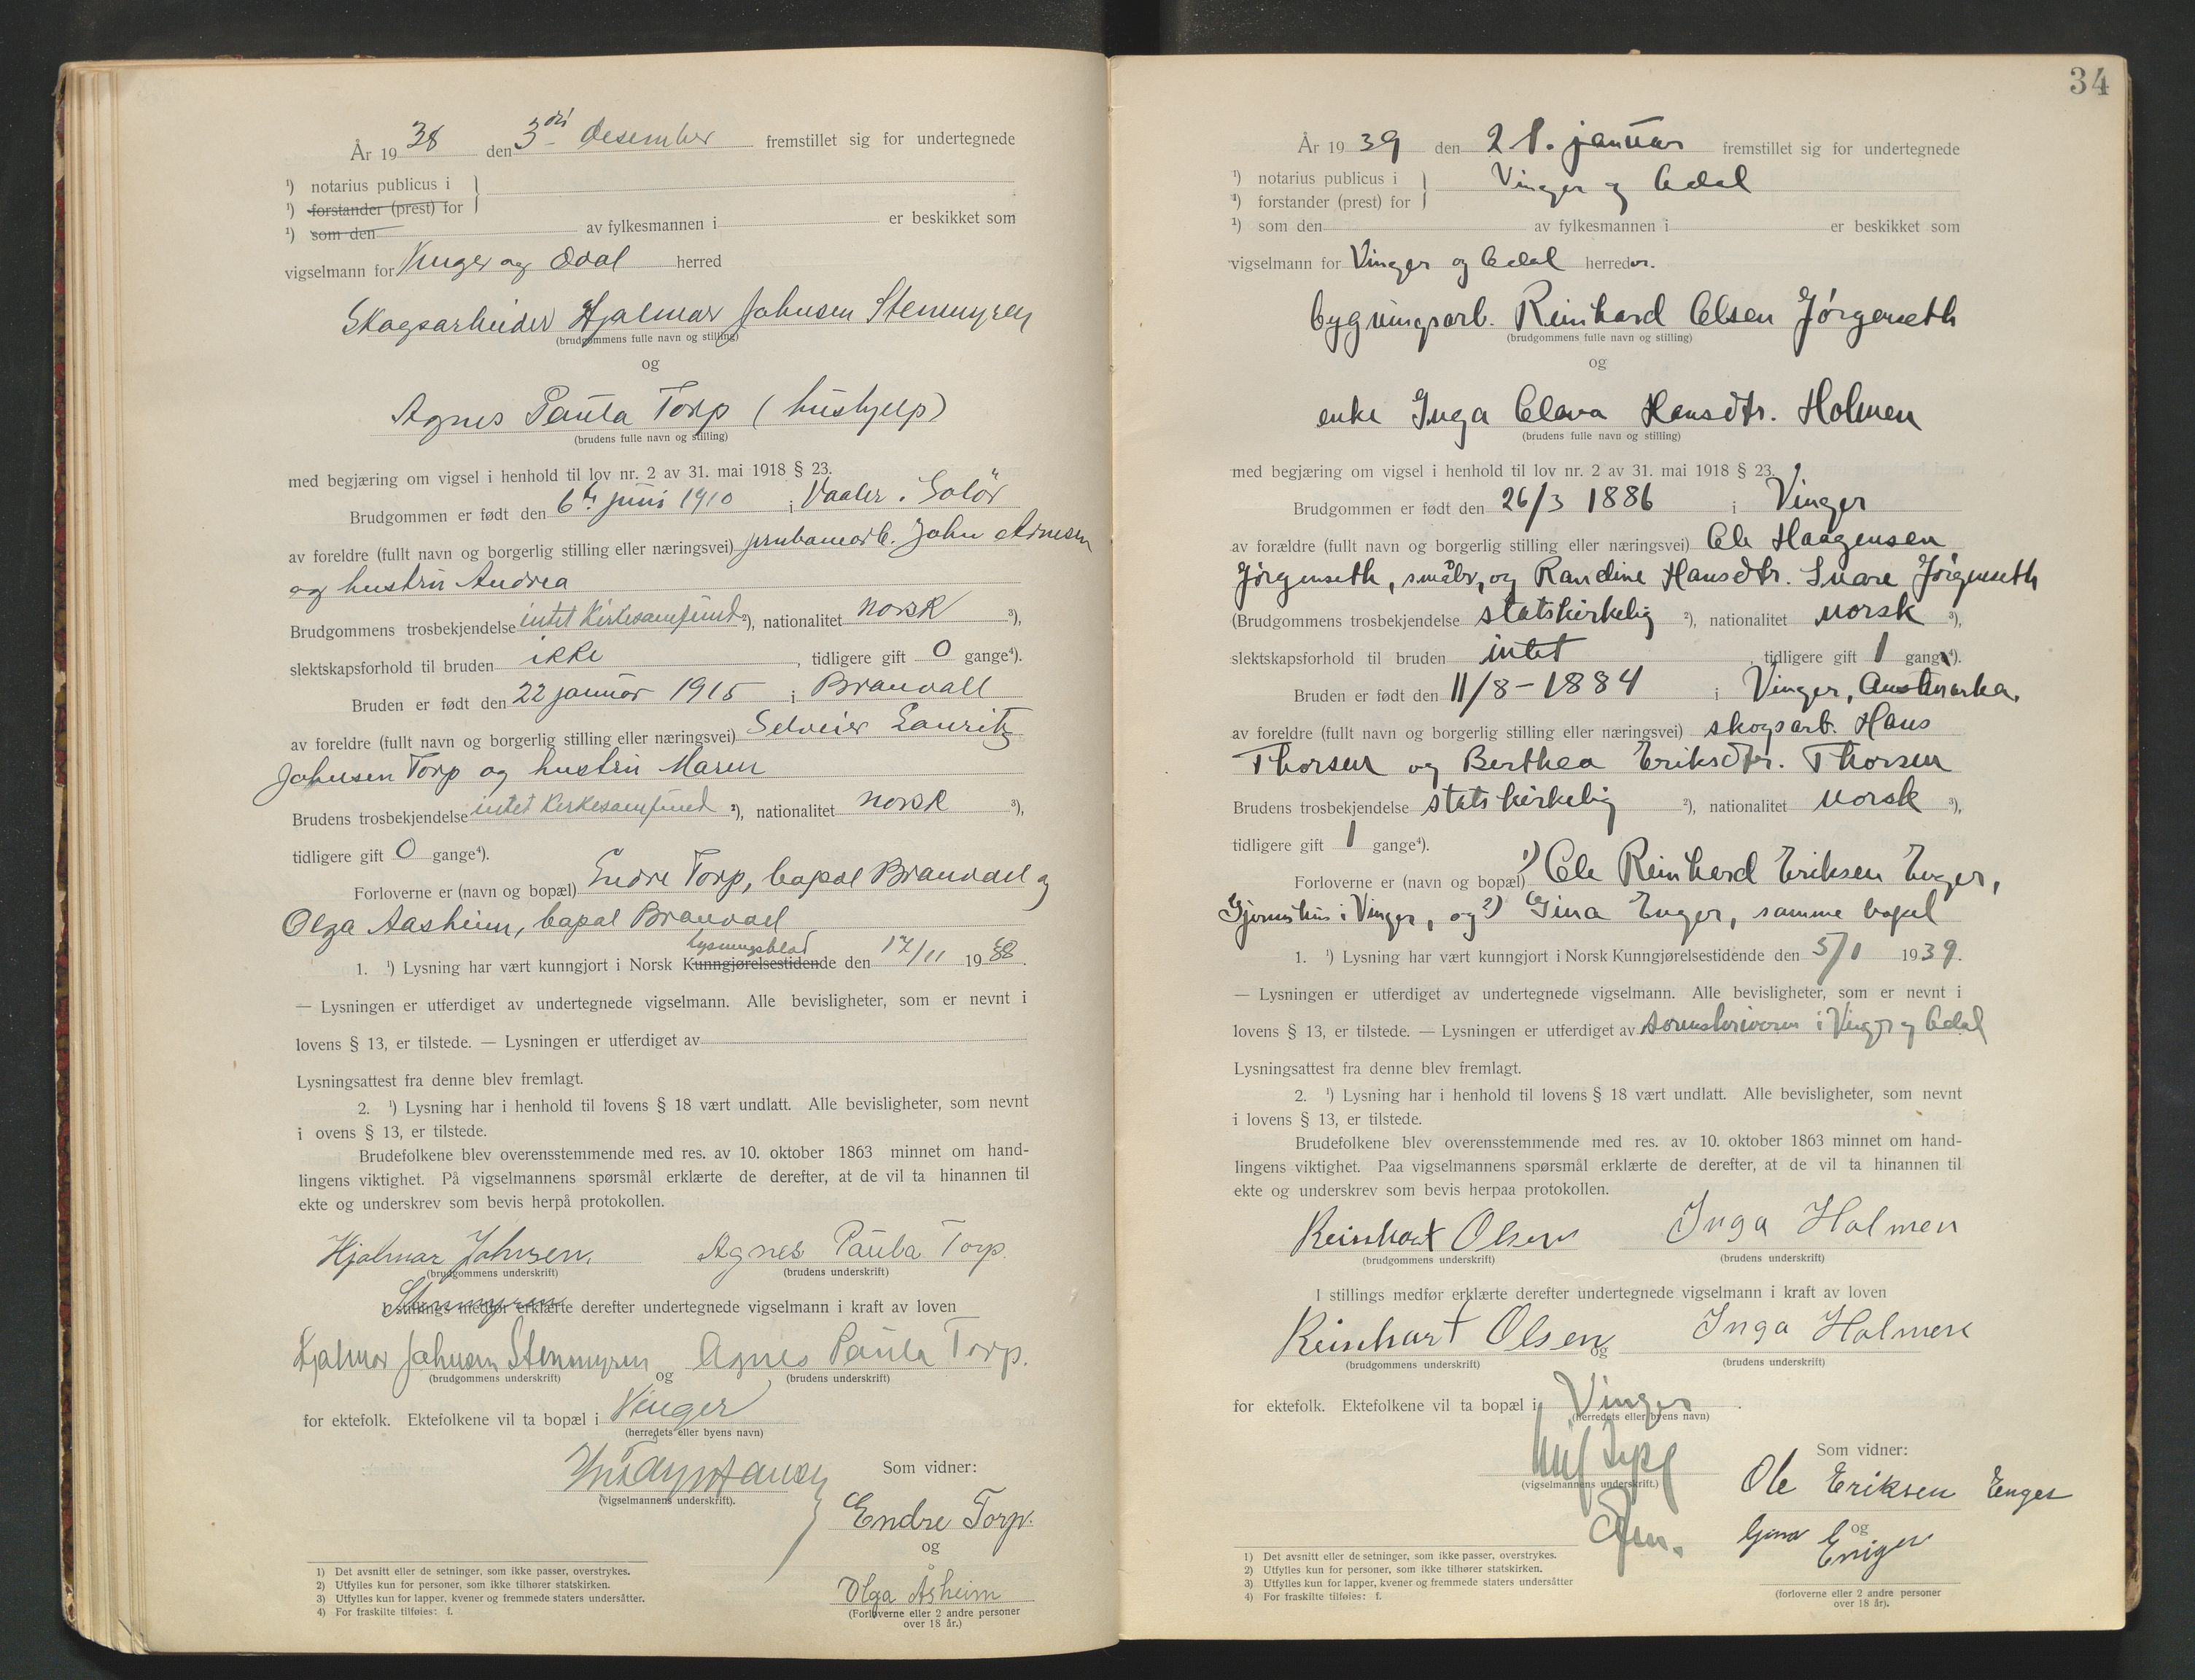 År 1938 den 3die desember fremstillet sig for undertegnede
¹) notarius publicus i
¹) forstander (prest) for
¹) som den av fylkesmannen i er beskikket som
vigselmann for Vinger og Odal herred
Skogsarbeider Hjalmar Johnsen Stenmyren
(brudgommens fulle navn og stilling)
og
Agnes Paula Torp (hushjelp)
(brudens fulle navn og stilling)
med begjæring om vigsel i henhold til lov nr. 2 av 31. mai 1918 § 23.
Brudgommen er født den 6te juni 1910 i Vaaler i Solör
av foreldre (fullt navn og borgerlig stilling eller næringsvei) jernbanearb. John Arnesen
og hustru Andrea
Brudgommens trosbekjendelse intet Kirkesamfund ²), nationalitet norsk ³),
slektskapsforhold til bruden ikke, tidligere gift 0 gange⁴).
Bruden er født den 22 januar 1915 i Brandvall
av foreldre (fullt navn og borgerlig stilling eller næringsvei) Selveier Lauritz
Johnsen Torp og hustru Maren
Brudens trosbekjendelse intet Kirkesamfund ²), nationalitet norsk ³),
tidligere gift 0 gange⁴).
Forloverne er (navn og bopæl) Endre Torp, bopæl Brandvall og
Olga Aasheim, bopal Brandvall
Lysningsblad
1. ¹) Lysning har vært kunngjort i Norsk Kunngjørelsestidende den 17/11 1938.
— Lysningen er utferdiget av undertegnede vigselmann. Alle bevisligheter, som er nevnt i
lovens § 13, er tilstede. — Lysningen er utferdiget av
Lysningsattest fra denne blev fremlagt.
2. ¹) Lysning har i henhold til lovens § 18 vært undlatt. Alle bevisligheter, som nevnt
i ovens § 13, er tilstede.
Brudefolkene blev overensstemmende med res. av 10. oktober 1863 minnet om hand-
lingens viktighet. På vigselmannens spørsmål erklærte de derefter, at de vil ta hinannen til
ekte og underskrev som bevis herpå protokollen.
Hjalmar Johnsen. Agnes Paula Torp.
(brudgommens underskrift) (brudens underskrift)
Stenmyren
stillings medfør erklærte derefter undertegnede vigselmann i kraft av loven
Hjalmar Johnsen Stenmyren og Agnes Paula Torp.
(brudgommens underskrift) (brudens underskrift)
for ektefolk. Ektefolkene vil ta bopæl i Vinger
(herredets eller byens navn)
(vigselmannens underskrift).
Som vidner:
Endre Torp.
og
Olga Åsheim
(Forloverne eller 2 andre personer
over 18 år.)
1) Det avsnitt eller de setninger, som ikke passer, overstrykes.
2) Utfylles kun for personer, som ikke tilhører statskirken.
3) Utfylles kun for lapper, kvener og fremmede staters undersåtter.
4) For fraskilte tilføies: f.
34
År 1939 den 21. januar fremstillet sig for undertegnede
¹) notarius publicus i Vinger og Odal
¹) forstander (prest) for
¹) som den av fylkesmannen i er beskikket som
vigselmann for Vinger og Odal herreder.
bygningsarb. Reinhard Olsen Jörgenseth
(brudgommens fulle navn og stilling)
og
enke Inga Olava Hansdtr. Holmen
(brudens fulle navn og stilling)
med begjæring om vigsel i henhold til lov nr. 2 av 31. mai 1918 § 23.
Brudgommen er født den 26/3 1886 i Vinger
av forældre (fullt navn og borgerlig stilling eller næringsvei) Ole Haagensen
Jörgenseth, småbr, og Randine Hansdtr. Snare Jörgenseth
(Brudgommens trosbekjendelse statskirkelig ²), nationalitet norsk ³),
slektskapsforhold til bruden intet, tidligere gift 1 gang⁴).
Bruden er født den 11/8-1884 i Vinger, Austmarka.
av foreldre (fullt navn og borgerlig stilling eller næringsvei) skogsarb. Hans
Thorsen og Berthea Eriksdtr. Thorsen
Brudens trosbekjendelse statskirkelig ²), nationalitet norsk ³),
tidligere gift 1 gange⁴).
Forloverne er (navn og bopæl) 1) Ole Reinhard Eriksen Enger,
Gjermshus i Vinger, og 2) Gina Enger, samme bopæl
1. ¹) Lysning har vært kunngjort i Norsk Kunngjørelsestidende den 5/1 1939.
— Lysningen er utferdiget av undertegnede vigselmann. Alle bevisligheter, som er nevnt i
lovens § 13, er tilstede. — Lysningen er utferdiget av sorenskriveren i Vinger og Odal
Lysningsattest fra denne blev fremlagt.
2. ¹) Lysning har i henhold til lovens § 18 vært undlatt. Alle bevisligheter, som nevnt
i lovens § 13, er tilstede.
Brudefolkene blev overensstemmende med res. av 10. oktober 1863 minnet om hand-
lingens viktighet. Paa vigselmannens spørsmål erklærte de derefter, at de vil ta hinannen til
ekte og underskrev som bevis herpaa protokollen.
Reinhart Olsen Inga Holmen
(brudgommens underskrift) (brudens underskrift)
I stillings medfør erklærte derefter undertegnede vigselmann i kraft av loven
Reinhart Olsen og Inga Holmen
(brudgommens underskrift) (brudens underskrift)
for ektefolk. Ektefolkene vil ta bopæl i Vinger.
(herredets eller byens navn)
(vigselmannens underskrift.)
Som vidner:
Ole Eriksen Enger
og
Gina Enger
(forloverne eller 2 andre personer
over 18 år).
1) Det avsnitt eller de setninger, som ikke passer, overstrykes.
2) Utfylles kun for personer, som ikke tilhører statskirken.
3) Utfylles kun for lapper, kvener og fremmede staters undersåtter
4) For fraskilte tilføies: f.